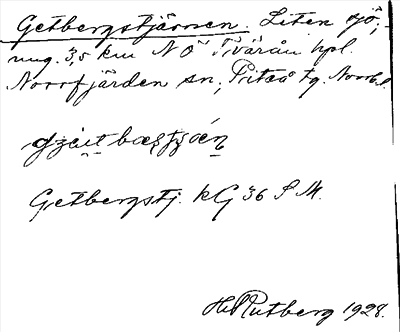 Getbergstjärnen. Liten sjö,
ung. 3,5 km N Ö Tvärån hpl.
Norrfjärden sn, Piteå tg. Norrb. l.
Getbergstj. kG 36 S M.
H. Rutberg 1928.